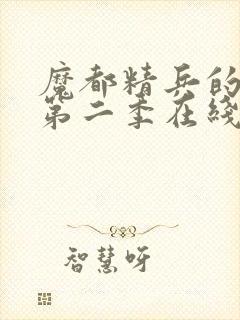 魔都精兵的
第二季在线
智慧呀